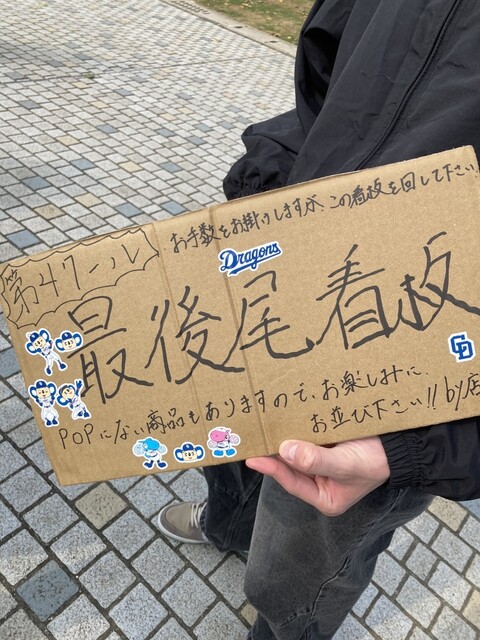 お手数をお掛けしますが、この看板を回して下さい
第4クール
Dragons
最後尾看板
CD
POPにない商品もありますので、お楽しみに
お並び下さい!! by店